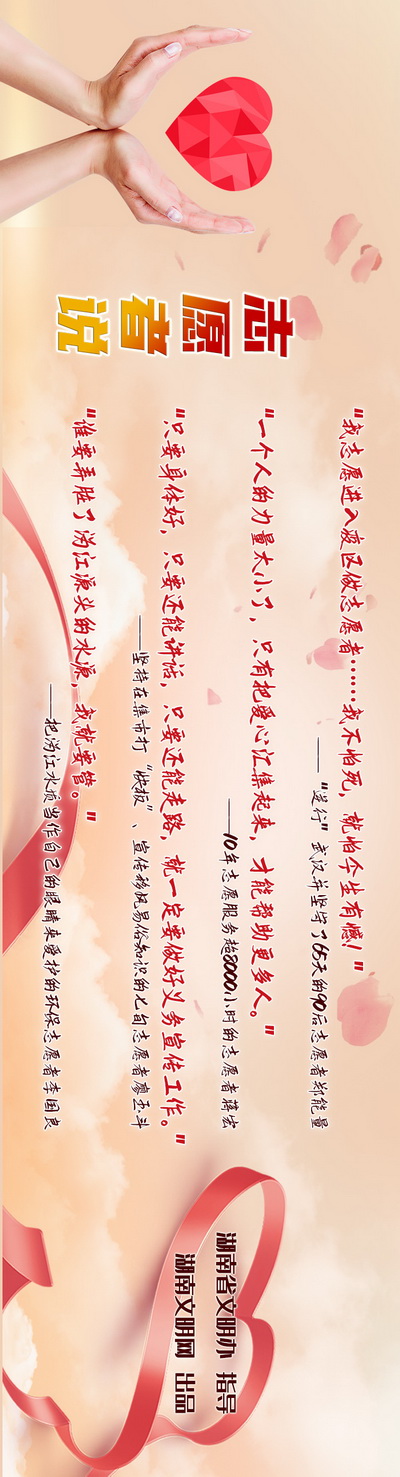 志愿者说
"我志愿进入疫区做志愿者……我不怕死，就怕今生有憾！"
——"逆行"武汉并坚守了65天的90后志愿者郑能量
"一个人的力量太小了，只有把爱心汇集起来，才能帮助更多人。"
——10年志愿服务超8000小时的志愿者蒋宏
"只要身体好，只要还能讲话，只要还能走路，就一定要做好义务宣传工作。"
——坚持在集市打"快板"、宣传移风易俗知识的七旬志愿者廖玉斗
"谁要弄脏了汤江源头的水源，我就要管。"
——把汤江水质当作自己的眼睛来爱护的环保志愿者李国良
湖南省文明办 指导
湖南文明网 出品